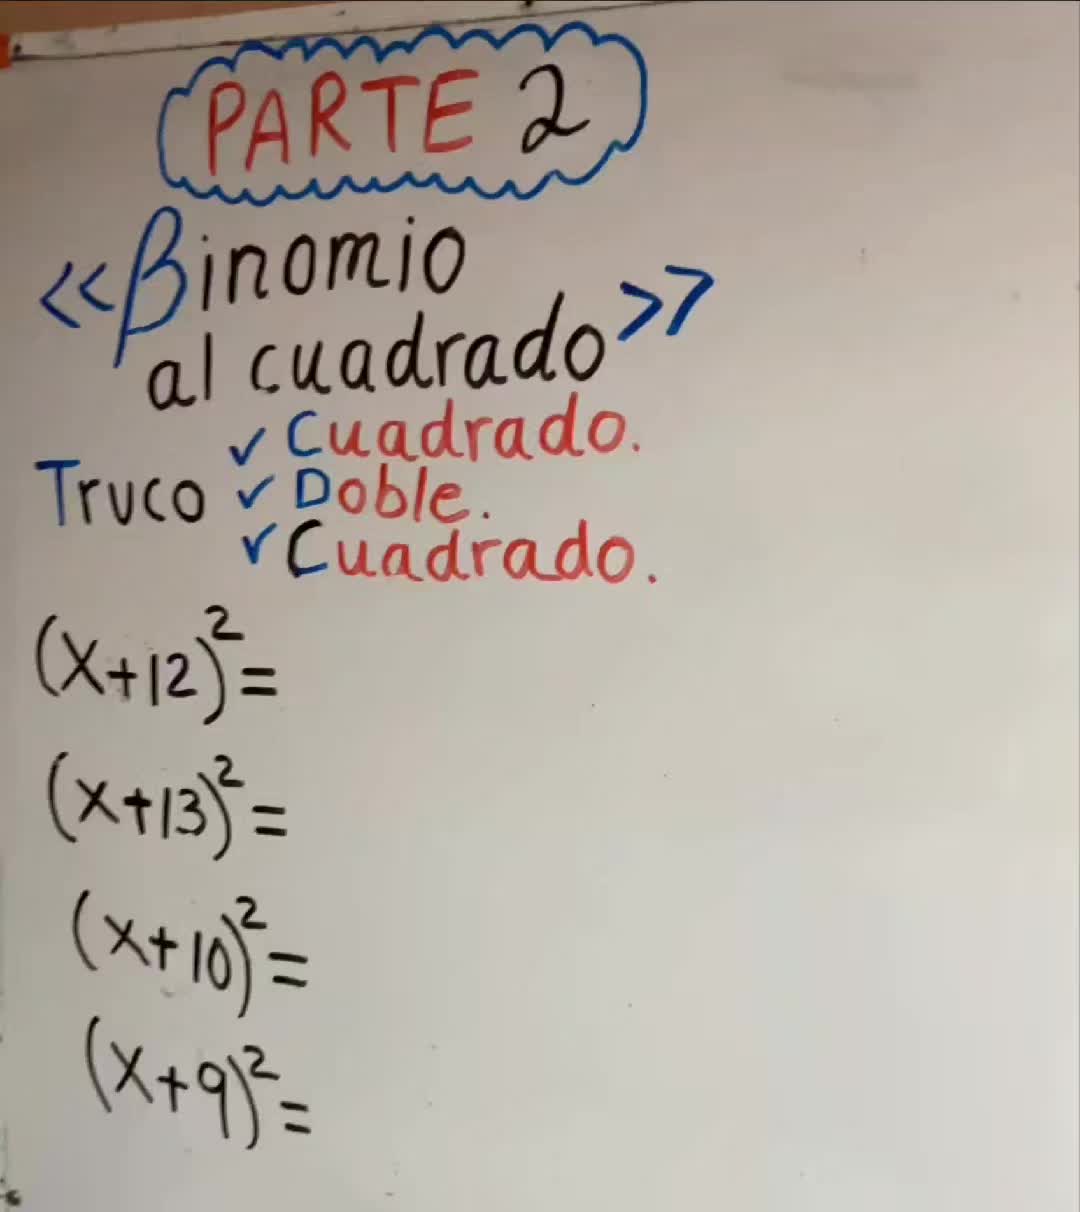 PARTE 2
<<Binomio
al cuadrado>>
✓ Cuadrado.
Truco ✓ Doble.
✓ Cuadrado.
(x+12)²=
(x+13)²=
(x+10)²=
(x+9)²=